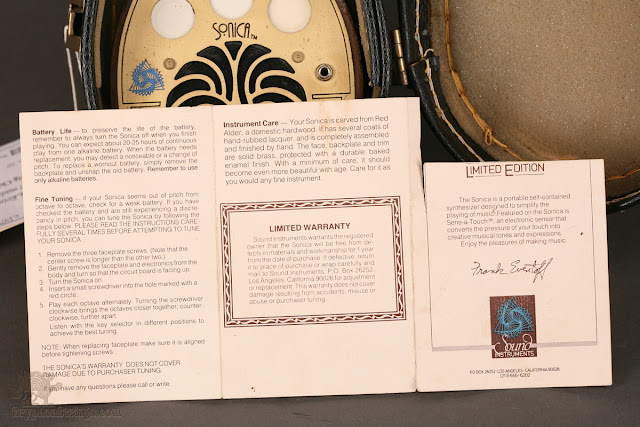 SONICA™
Battery Life — to preserve the life of the battery,
remember to always turn the Sonica off when you finish
playing. You can expect about 20-25 hours of continuous
play from one alkaline battery. When the battery needs
replacement, you may detect a noticeable or a change of
pitch. To replace a wornout battery, simply remove the
backplate and unsnap the old battery. Remember to use
only alkaline batteries.
Fine Tuning — if your Sonica seems out of pitch from
octave to octave, check for a weak battery. If you have
checked the battery and are still experiencing a discre-
pancy in pitch, you can tune the Sonica by following the
steps below. PLEASE READ THE INSTRUCTIONS CARE-
FULLY SEVERAL TIMES BEFORE ATTEMPTING TO TUNE
YOUR SONICA.
1. Remove the three faceplate screws. (Note that the
center one is longer than the other two.)
2. Gently remove the faceplate and electronics from the
body and turn so that the circuit board is facing up.
3. Turn the Sonica on.
4. Insert a small screwdriver into the hole marked with a
red circle.
5. Play each octave alternately. Turning the screwdriver
clockwise brings the octaves closer together; counter-
clockwise, further apart.
Listen with the key selector in different positions to
achieve the best tuning.
NOTE: When replacing faceplate make sure it is aligned
before tightening screws.
THE SONICA'S WARRANTY DOES NOT COVER
DAMAGE DUE TO PURCHASER TUNING.
If you have any questions please call or write.
Instrument Care — Your Sonica is carved from Red
Alder, a domestic hardwood. It has several coats of
hand-rubbed lacquer, and is completely assembled
and finished by hand. The face, backplate and trim
are solid brass, protected with a durable baked
enamel finish. With a minimum of care, it should
become even more beautiful with age. Care for it as
you would any fine instrument.
LIMITED WARRANTY
Sound Instruments warrants the registered
owner that the Sonica will be free from de-
fects in materials and workmanship for 1 year
from the date of purchase. If defective, return
it to place of purchase or wrap carefully and
mail to Sound Instruments, P.O. Box 26252,
Los Angeles, California 90026 for adjustment
or replacement. This warranty does not cover
damage resulting from accidents, misuse
or abuse or purchaser tuning.
LIMITED EDITION
The Sonica is a portable self-contained
synthesizer designed to simplify the
playing of music. Featured on the Sonica is
Sens-a-Touch™, an electronic sensor that
converts the pressure of your touch into
creative musical tones and expressions.
Enjoy the pleasures of making music.
Frank Eventoff
Sound
INSTRUMENTS
PO BOX 26252 • LOS ANGELES • CALIFORNIA 90026
(213) 666-6202